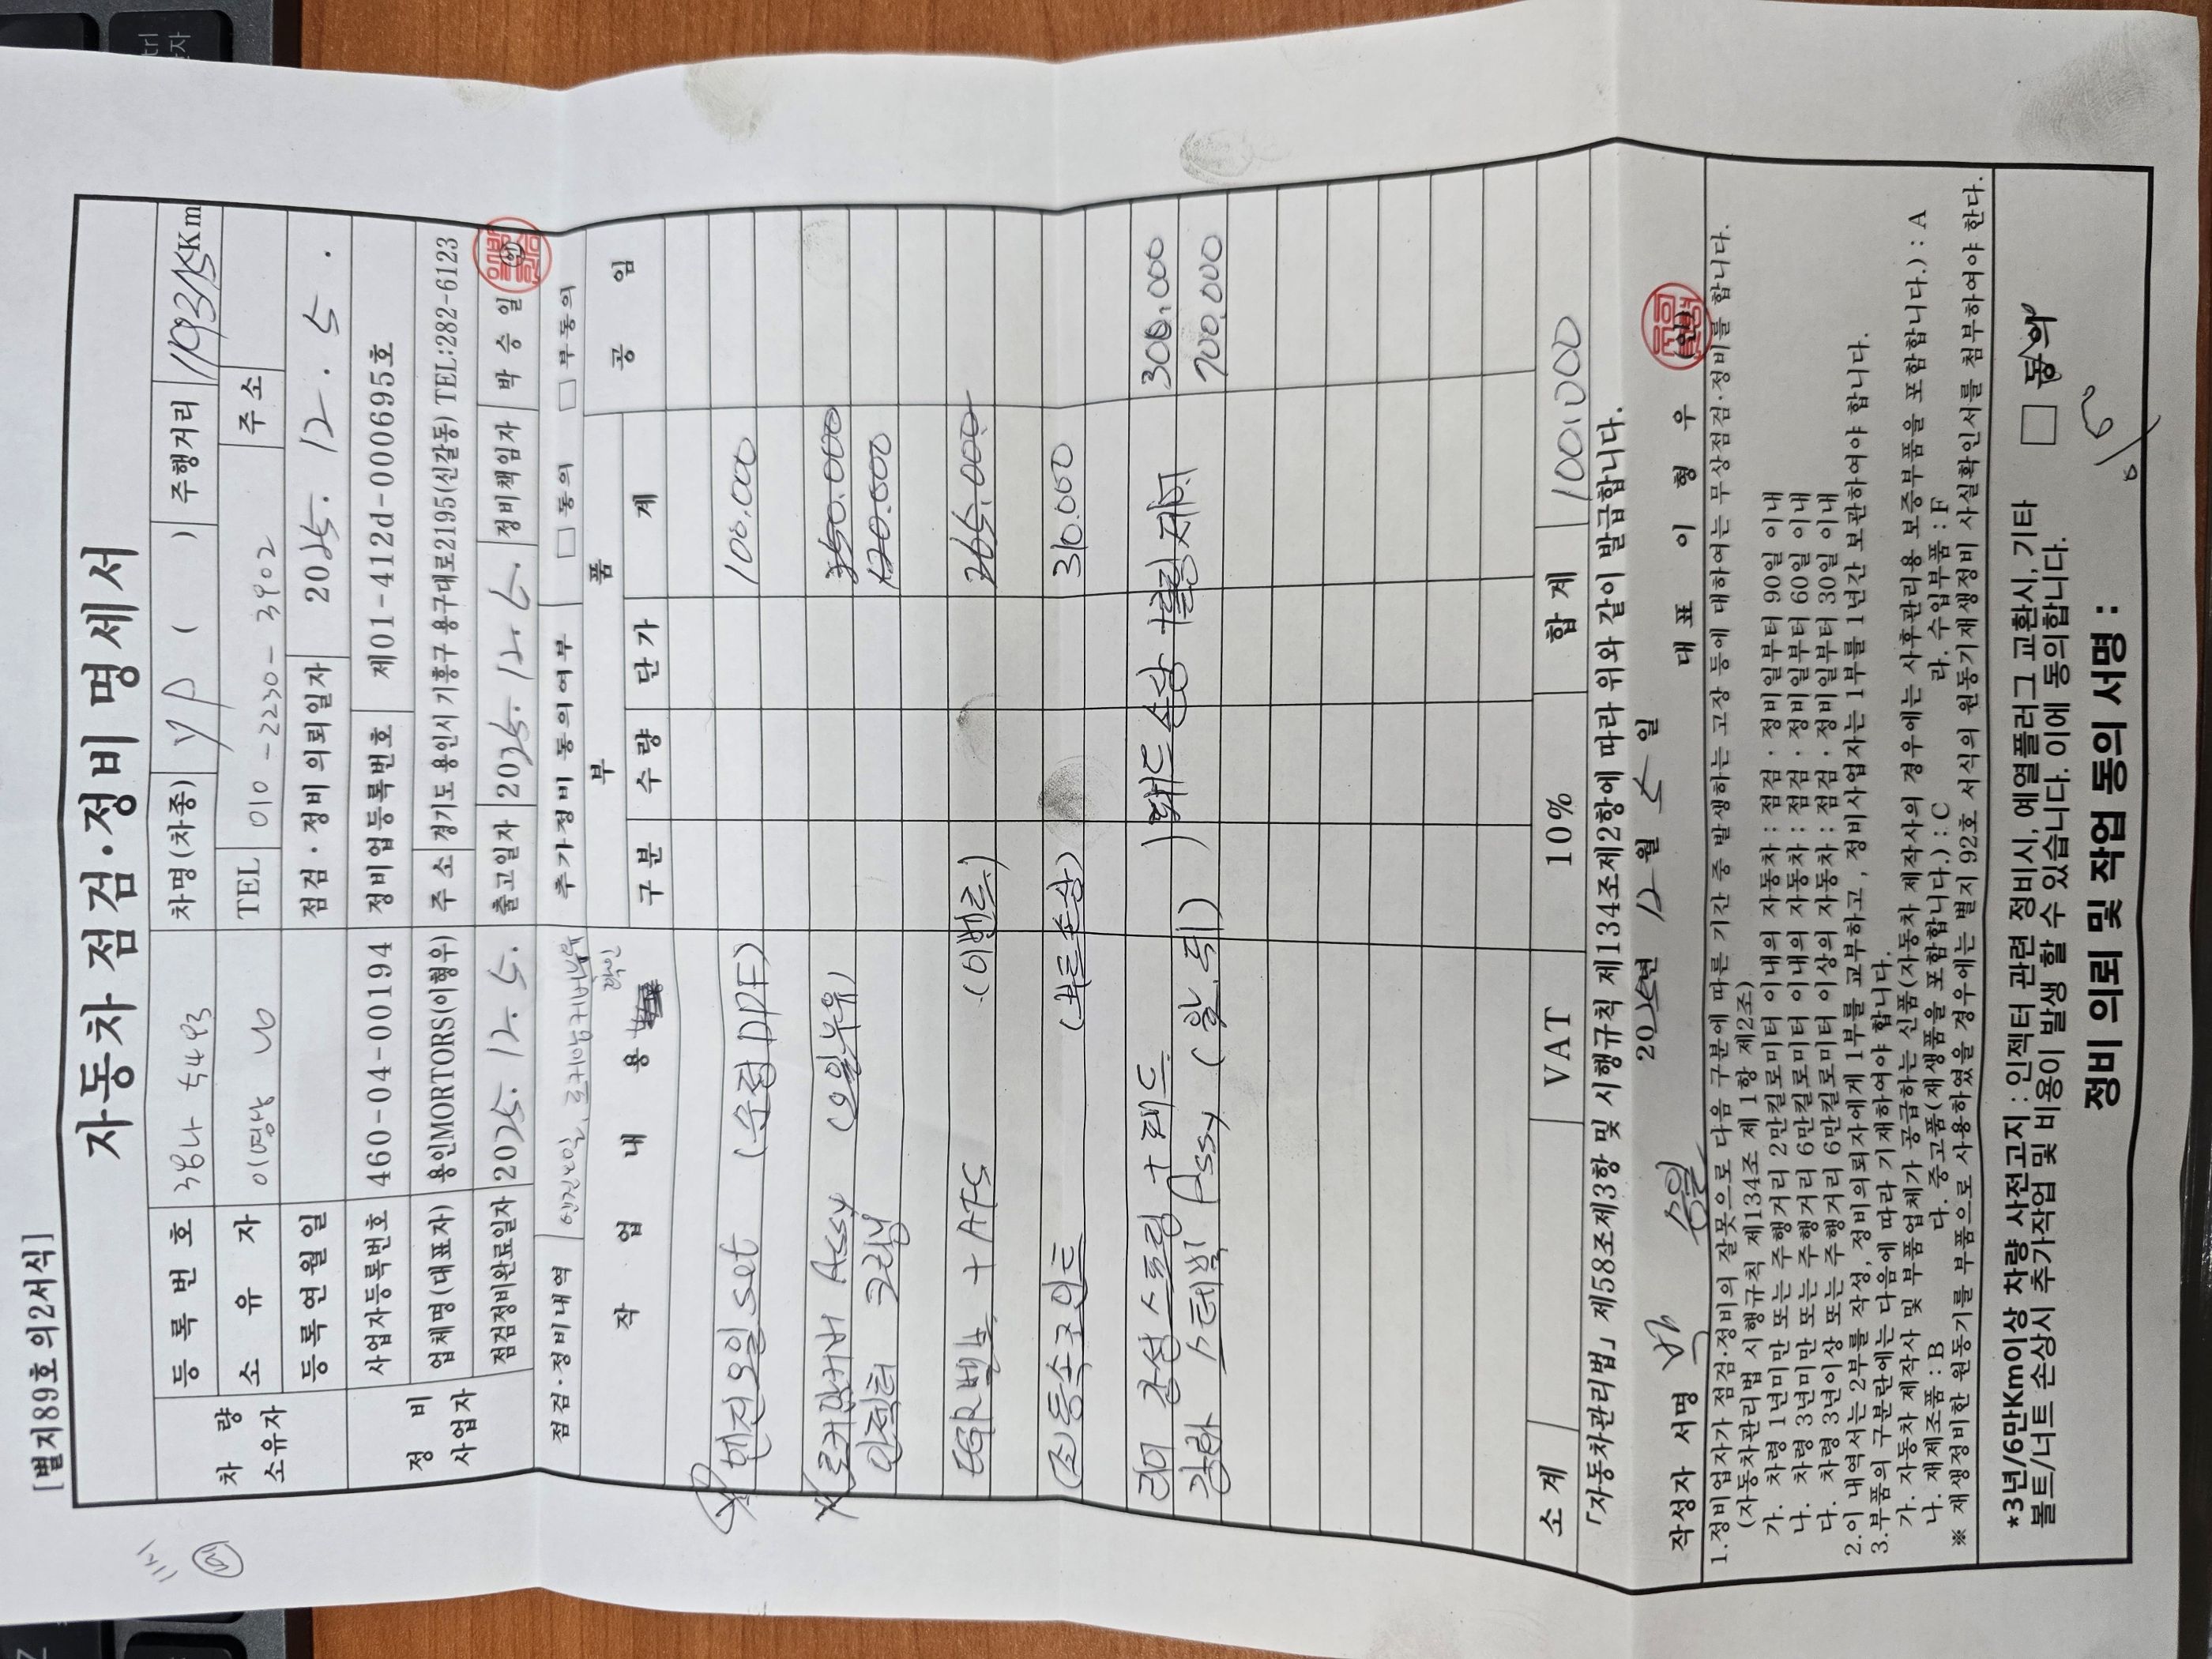 [별지89호의2서식]
자동차 점검·정비 명세서
차량 소유자
등록번호 38나 5493 차명(차종) YP ( ) 주행거리 119315Km
소유자 이영남 TEL 010-2230-3902 주소
등록연월일 점검·정비 의뢰일자 2025. 12. 5.
정비 사업자
사업자등록번호 460-04-00194 정비업등록번호 제01-412d-000695호
업체명(대표자) 용인MORTORS(이형우) 주소 경기도 용인시 기흥구 용구대로2195(신갈동) TEL:282-6123
점검정비완료일자 2025. 12. 5. 출고일자 2025. 12. 5. 정비책임자 박승일 (인)
점검·정비내역 엔진오일, 로커암커버누유 확인 추가정비 동의여부 □ 동의 □ 부동의
작업내용 부품 공임
구분 수량 단가 계
엔진오일 set (순정DPF) 100.000
로커암커버 Assy (오일누유) 350.000
인젝터 크리닝 120.000
EGR밸브 + AFS (이벤트) 265.000
(조)등속조인트 (부트손상) 310.000
리어 강성 스프링 + 패드 ) 패드손상 300.000
강화 스테빌 Assy (앞, 뒤) 700.000
소계 VAT 10% 합계 100만000
「자동차관리법」 제58조제3항 및 시행규칙 제134조제2항에 따라 위와 같이 발급합니다.
2025년 12월 5일
작성자 서명 박승일 대표 이형우 (인)
1.정비업사가 점검·정비의 잘못으로 다음 구분에 따른 기간 중 발생하는 고장 등에 대하여는 무상점검·정비를 합니다.
(자동차관리법 시행규칙 제134조 제1항 제2조)
가. 차령 1년미만 또는 주행거리 2만킬로미터 이내의 자동차 : 점검·정비일부터 90일 이내
나. 차령 3년미만 또는 주행거리 6만킬로미터 이내의 자동차 : 점검·정비일부터 60일 이내
다. 차령 3년이상 또는 주행거리 6만킬로미터 이상의 자동차 : 점검·정비일부터 30일 이내
2.이 내역서는 2부를 작성, 정비의뢰자에게 1부를 교부하고, 정비사업자는 1부를 1년간 보관하여야 합니다.
3.부품의 구분란에는 다음에 따라 기재하여야 합니다.
가. 자동차 제작사 및 부품업체가 공급하는 신품(자동차 제작사의 경우에는 사후관리용 보증부품을 포함합니다.) : A
나. 재제조품 : B 다. 중고품(재생품을 포함합니다.) : C 라. 수입부품 : F
※ 재생정비한 원동기를 부품으로 사용하였을 경우에는 별지 92호 서식의 원동기 재생정비 사실확인서를 첨부하여야 한다.
*3년/6만Km이상 차량 사전고지 : 인젝터 관련 정비시, 예열플러그 교환시, 기타
볼트/너트 손상시 추가작업 및 비용이 발생 할 수 있습니다. 이에 동의합니다. □ 동의
정비 의뢰 및 작업 동의 서명 :